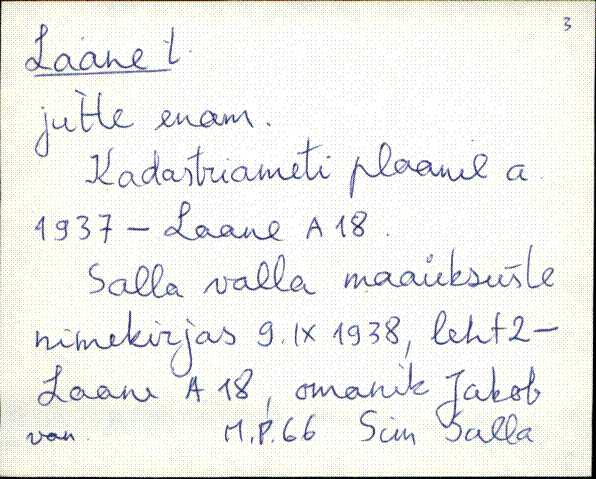 3
Laane t.
jutte enam.
Kadastriameti plaanil a.
1937 – Laane A 18.
Salla valla maaüksuste
nimekirjas 9. IX 1938, leht 2 –
Laane A 18, omanik Jakob
M.P. 66 Sim Salla